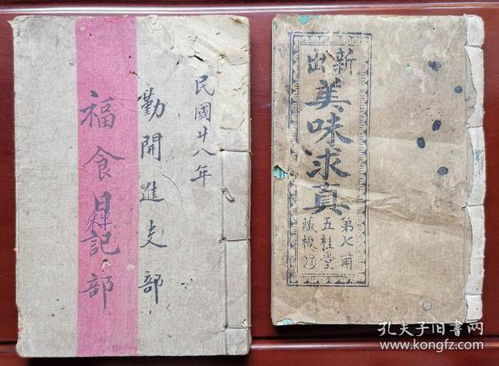 民國廿八年
勤開進支部
福食日記部
新出
美味求真
第七甫
五桂堂
藏板
孔夫子旧书网
www.kongfz.com